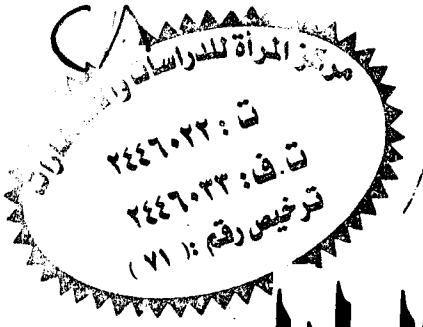 مركز المرأة للدراسات
ت : ٢٤٤٦٠٢٢
ت.ف: ٢٤٤٦٠٣٣
ترخيص رقم :( ٧١ )